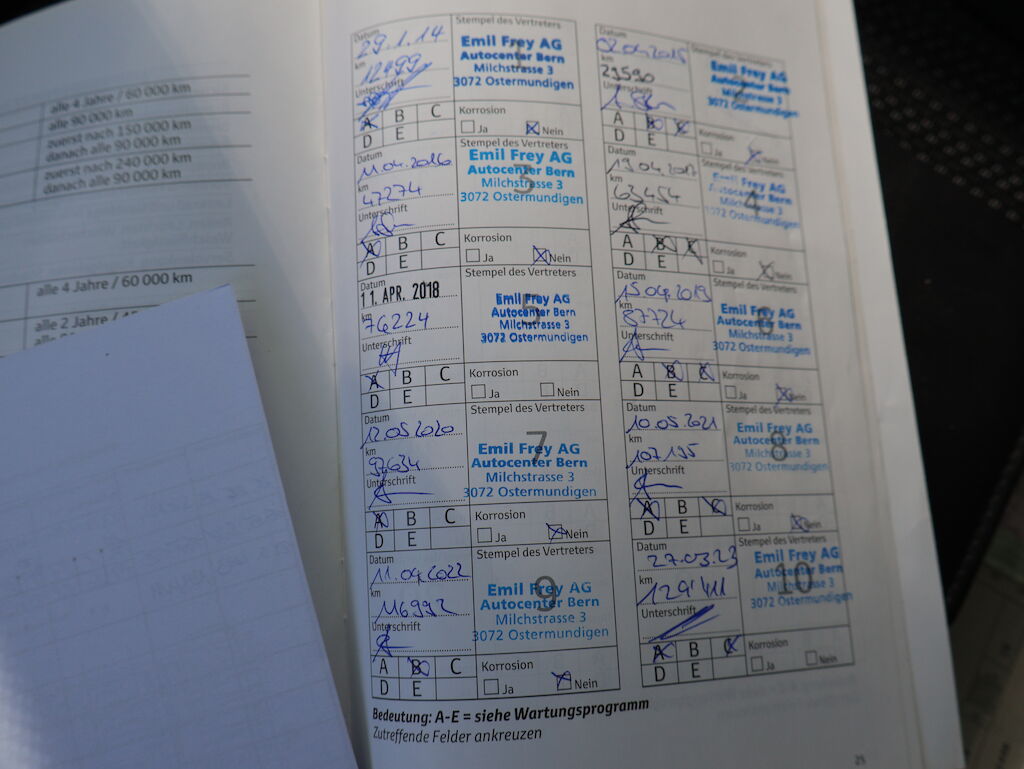 alle 4 Jahre / 60 000 km
alle 90 000 km
zuerst nach 150 000 km
danach alle 90 000 km
zuerst nach 240 000 km
danach alle 90 000 km
alle 4 Jahre / 60 000 km
alle 2 Jahre /
Datum
29.1.14
km
12499
Unterschrift
Stempel des Vertreters
1
Emil Frey AG
Autocenter Bern
Milchstrasse 3
3072 Ostermundigen
A B C
D E
Korrosion
Ja Nein
Datum
02.04.2015
km
29590
Stempel des Vertreters
2
Emil Frey AG
Autocenter Bern
Milchstrasse 3
3072 Ostermundigen
A B C
D E
Korrosion
Ja Nein
Datum
11.04.2016
km
47274
Unterschrift
Stempel des Vertreters
3
Emil Frey AG
Autocenter Bern
Milchstrasse 3
3072 Ostermundigen
A B C
D E
Korrosion
Ja Nein
Datum
19.04.2017
km
63454
Unterschrift
Stempel des Vertreters
4
Emil Frey AG
Autocenter Bern
Milchstrasse 3
3072 Ostermundigen
A B C
D E
Korrosion
Ja Nein
Datum
11. APR. 2018
km
76224
Unterschrift
Stempel des Vertreters
5
Emil Frey AG
Autocenter Bern
Milchstrasse 3
3072 Ostermundigen
A B C
D E
Korrosion
Ja Nein
Datum
15.04.2019
km
87724
Unterschrift
Stempel des Vertreters
6
Emil Frey AG
Autocenter Bern
Milchstrasse 3
3072 Ostermundigen
A B C
D E
Korrosion
Ja Nein
Datum
12.05.2020
km
97634
Unterschrift
Stempel des Vertreters
7
Emil Frey AG
Autocenter Bern
Milchstrasse 3
3072 Ostermundigen
A B C
D E
Korrosion
Ja Nein
Datum
10.05.2021
km
107135
Unterschrift
Stempel des Vertreters
8
Emil Frey AG
Autocenter Bern
Milchstrasse 3
3072 Ostermundigen
A B C
D E
Korrosion
Ja Nein
Datum
11.04.2022
km
116992
Unterschrift
Stempel des Vertreters
9
Emil Frey AG
Autocenter Bern
Milchstrasse 3
3072 Ostermundigen
A B C
D E
Korrosion
Ja Nein
Datum
27.03.23
km
129'411
Unterschrift
Stempel des Vertreters
10
Emil Frey AG
Autocenter Bern
Milchstrasse 3
3072 Ostermundigen
A B C
D E
Korrosion
Ja Nein
Bedeutung: A-E = siehe Wartungsprogramm
Zutreffende Felder ankreuzen
25